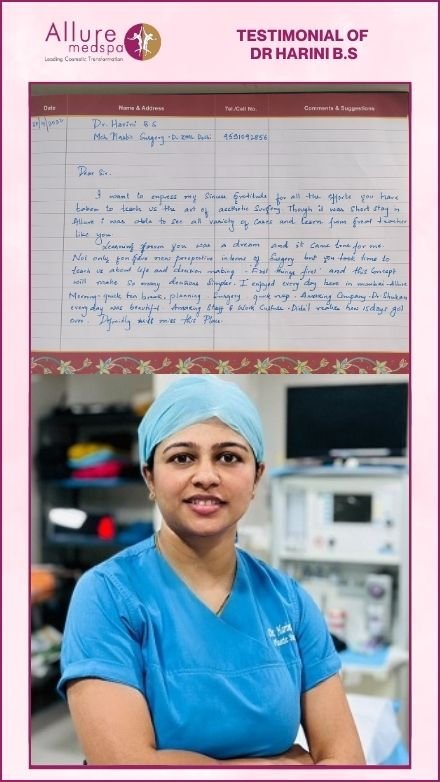 Allure
medspa
Leading Cosmetic Transformation
TESTIMONIAL OF
DR HARINI B.S
Date Name & Address Tel./Cell No. Comments & Suggestions
Dr. Harini B.S
Mch Plastic Surgery - Dr. RML Delhi 9591092856
Dear Sir,
I want to express my Sincere Gratitude for all the efforts you have
taken to teach us the art of aesthetic Surgery. Though it was short stay in
Allure i was able to see all variety of cases and learn from great teacher
like you.
Learning from you was a dream and it came true for me.
Not only you gave new perspective interms of Surgery but you took time to
teach us about life and decision making - 'First things first' and this concept
will make so many decisions Simpler. I enjoyed every day here in mumbai - Allure
Morning - quick tea break, planning - Surgery - quick nap - Amazing Company - Dr Shukan
everyday was beautiful. Amazing Staff & Work Culture - Didn't realise how 15 days got
over. Definitly will miss this Place.
Dr.
Plastic